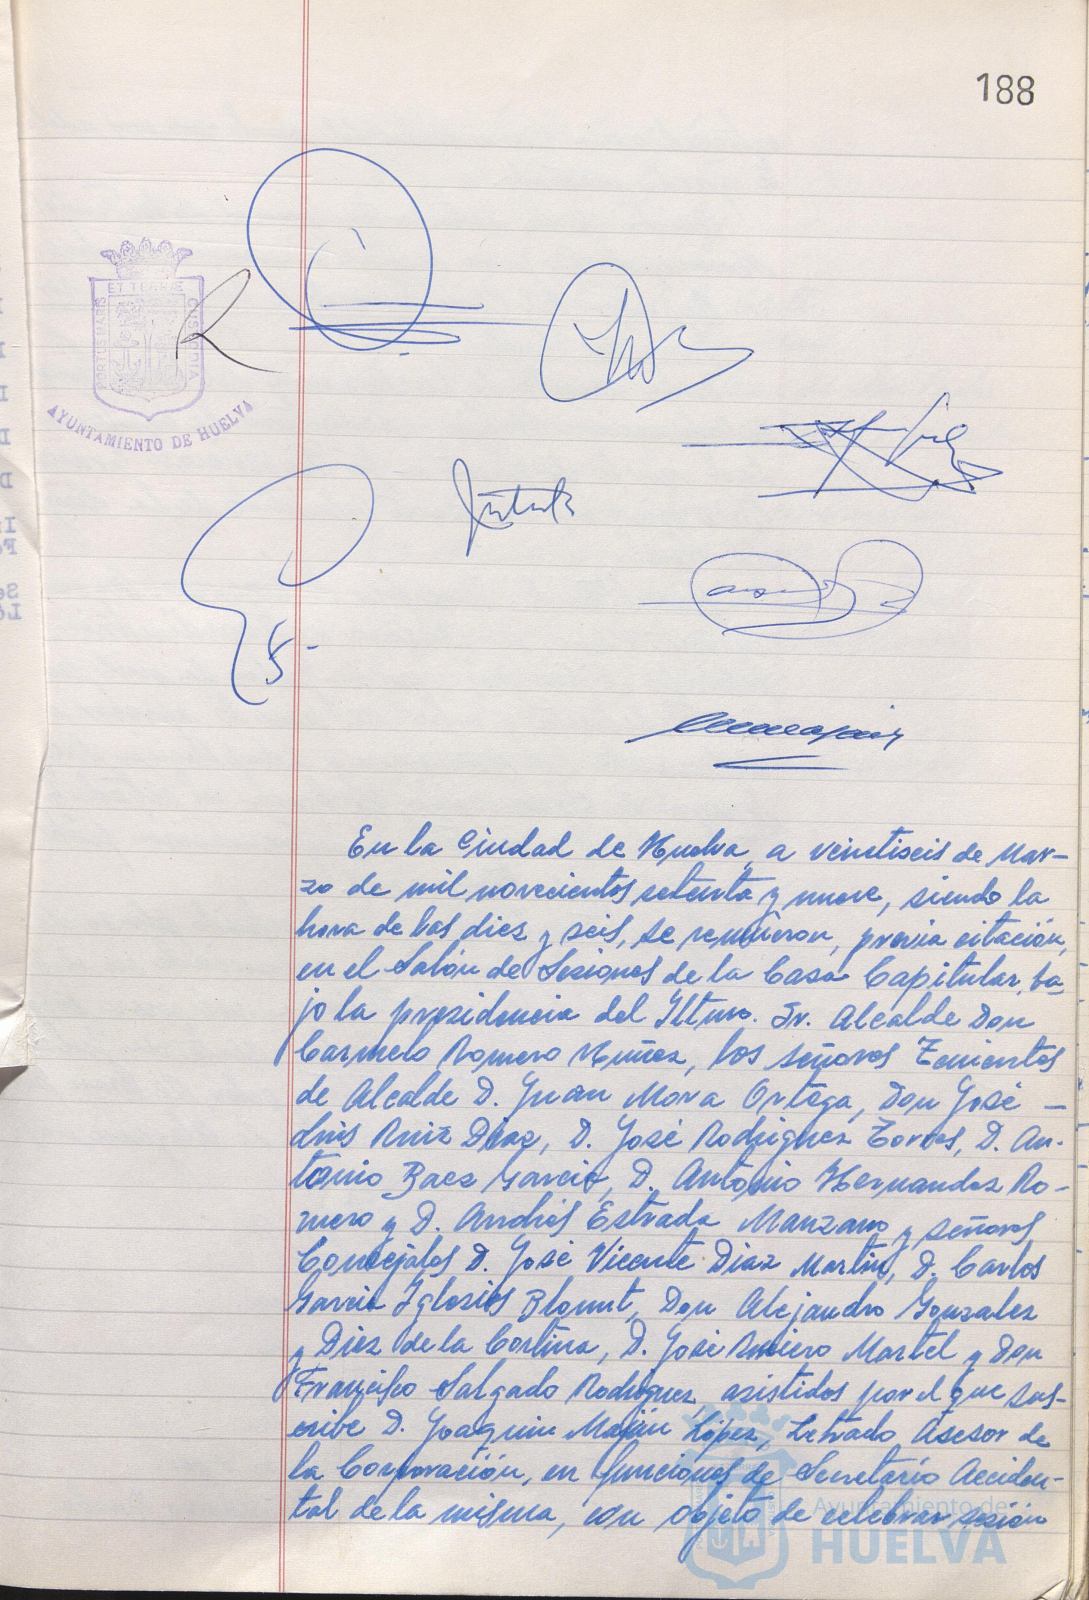 188
ET TERRAE
PORTUS MARIS
CUSTODIA
AYUNTAMIENTO DE HUELVA
En la Ciudad de Huelva, a veintiseis de Mar-
zo de mil novecientos setenta y nueve, siendo la
hora de las diez y seis, se reunieron, previa citación,
en el Salón de Sesiones de la Casa Capitular, ba-
jo la presidencia del Iltmo. Sr. Alcalde Don
Carmelo Romero Nuñez, los señores Tenientes
de Alcalde D. Juan Mora Ortega, Don José —
Luis Ruiz Diaz, D. José Rodriguez Torres, D. An-
tonio Baez Garcia, D. Antonio Hernandez Ro-
mero y D. Andrés Estrada Manzano y señores
Concejales D. José Vicente Diaz Martin, D. Carlos
Garcia Iglesias Blount, Don Alejandro Gonzalez
y Diez de la Cortina, D. José Martel y Don
Francisco Salgado Rodriguez, asistidos por el que sus-
cribe D. Joaquin López, Letrado Asesor de
la Corporación, en funciones de Secretario Acciden-
tal de la misma, con objeto de celebrar sesión
Ayuntamiento de
HUELVA